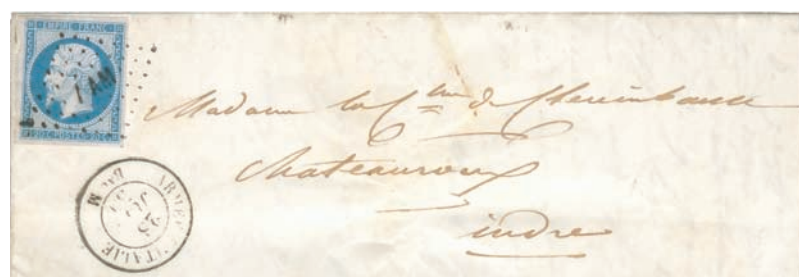 EMPIRE FRANC
20 C. POSTES 20 C.
AM
Madame la Ctesse de
Chateauroux
indre
ARMEE D'ITALIE
23